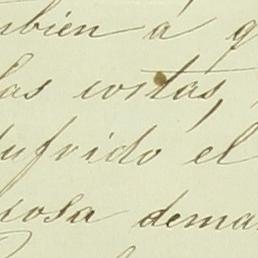 mbién a q
las costas,
sufrido el
posa deman